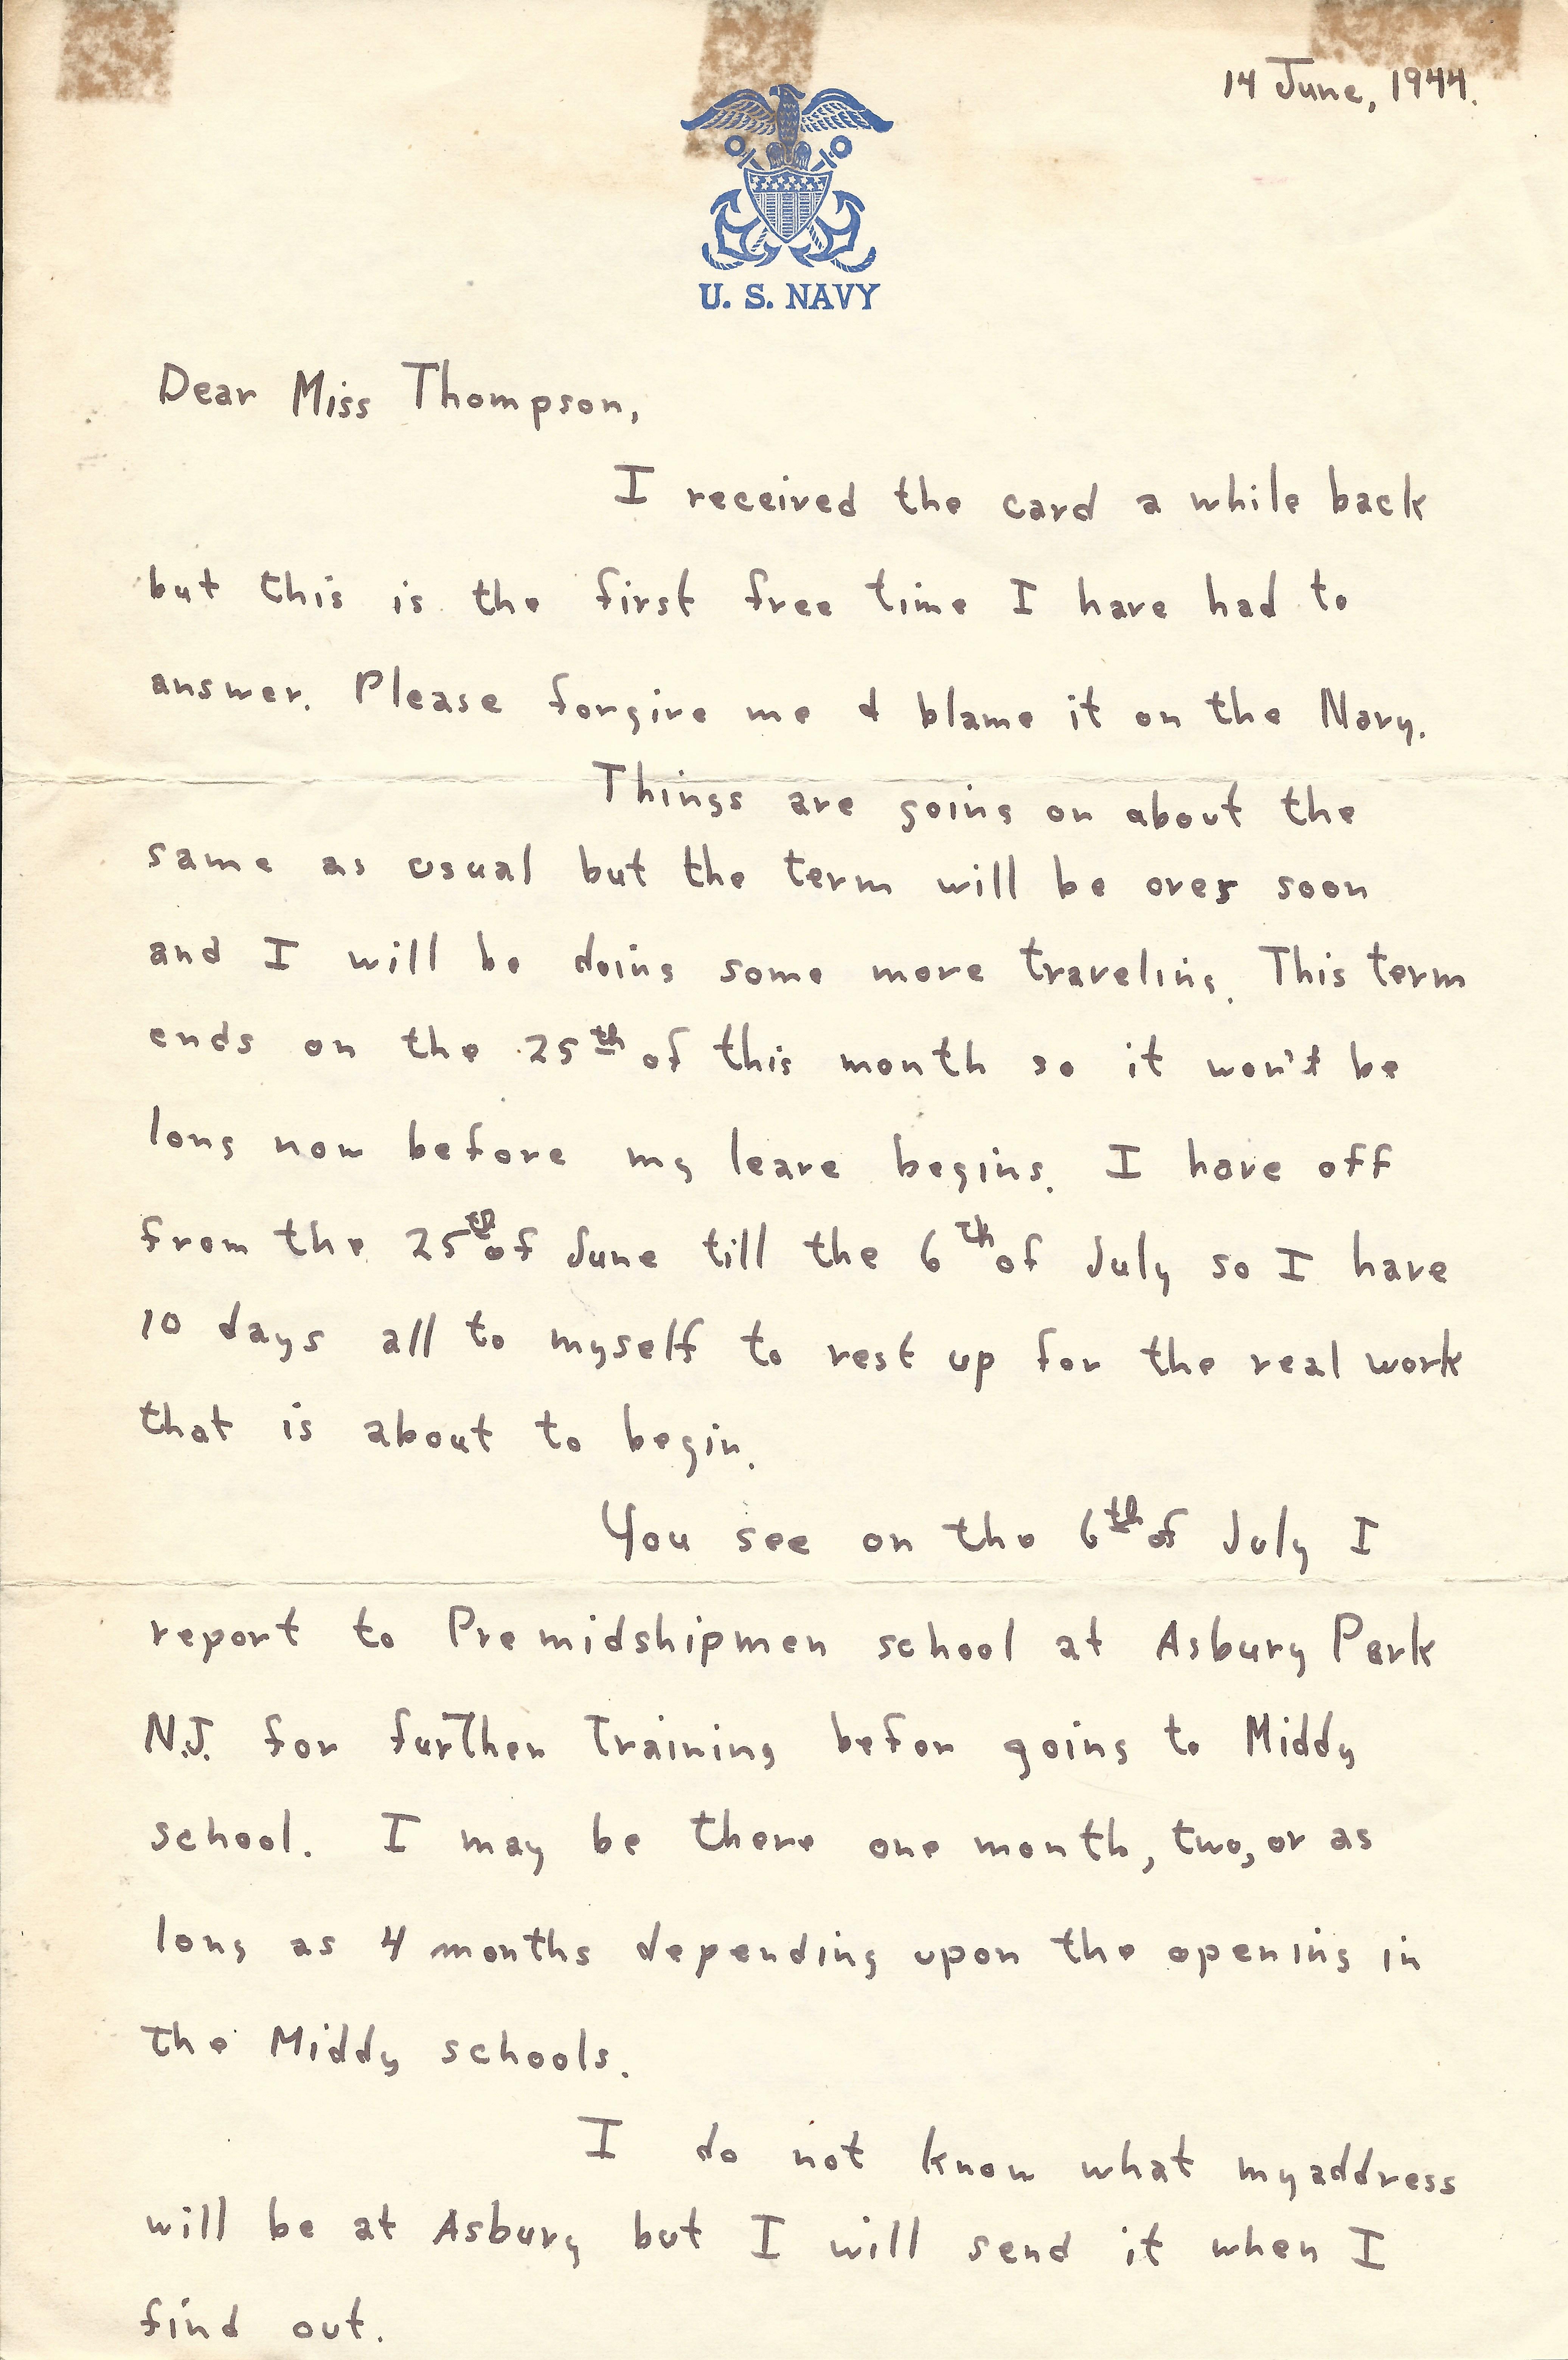 14 June, 1944.
U. S. NAVY
Dear Miss Thompson,
I received the card a while back
but this is the first free time I have had to
answer. Please forgive me & blame it on the Navy.
Things are going on about the
same as usual but the term will be over soon
and I will be doing some more traveling. This term
ends on the 25th of this month so it won't be
long now before my leave begins. I have off
from the 25th of June till the 6th of July so I have
10 days all to myself to rest up for the real work
that is about to begin.
You see on the 6th of July I
report to Pre midshipmen school at Asbury Park
N.J. for further Training befor going to Middy
school. I may be there one month, two, or as
long as 4 months depending upon the opening in
the Middy schools.
I do not know what my address
will be at Asbury but I will send it when I
find out.